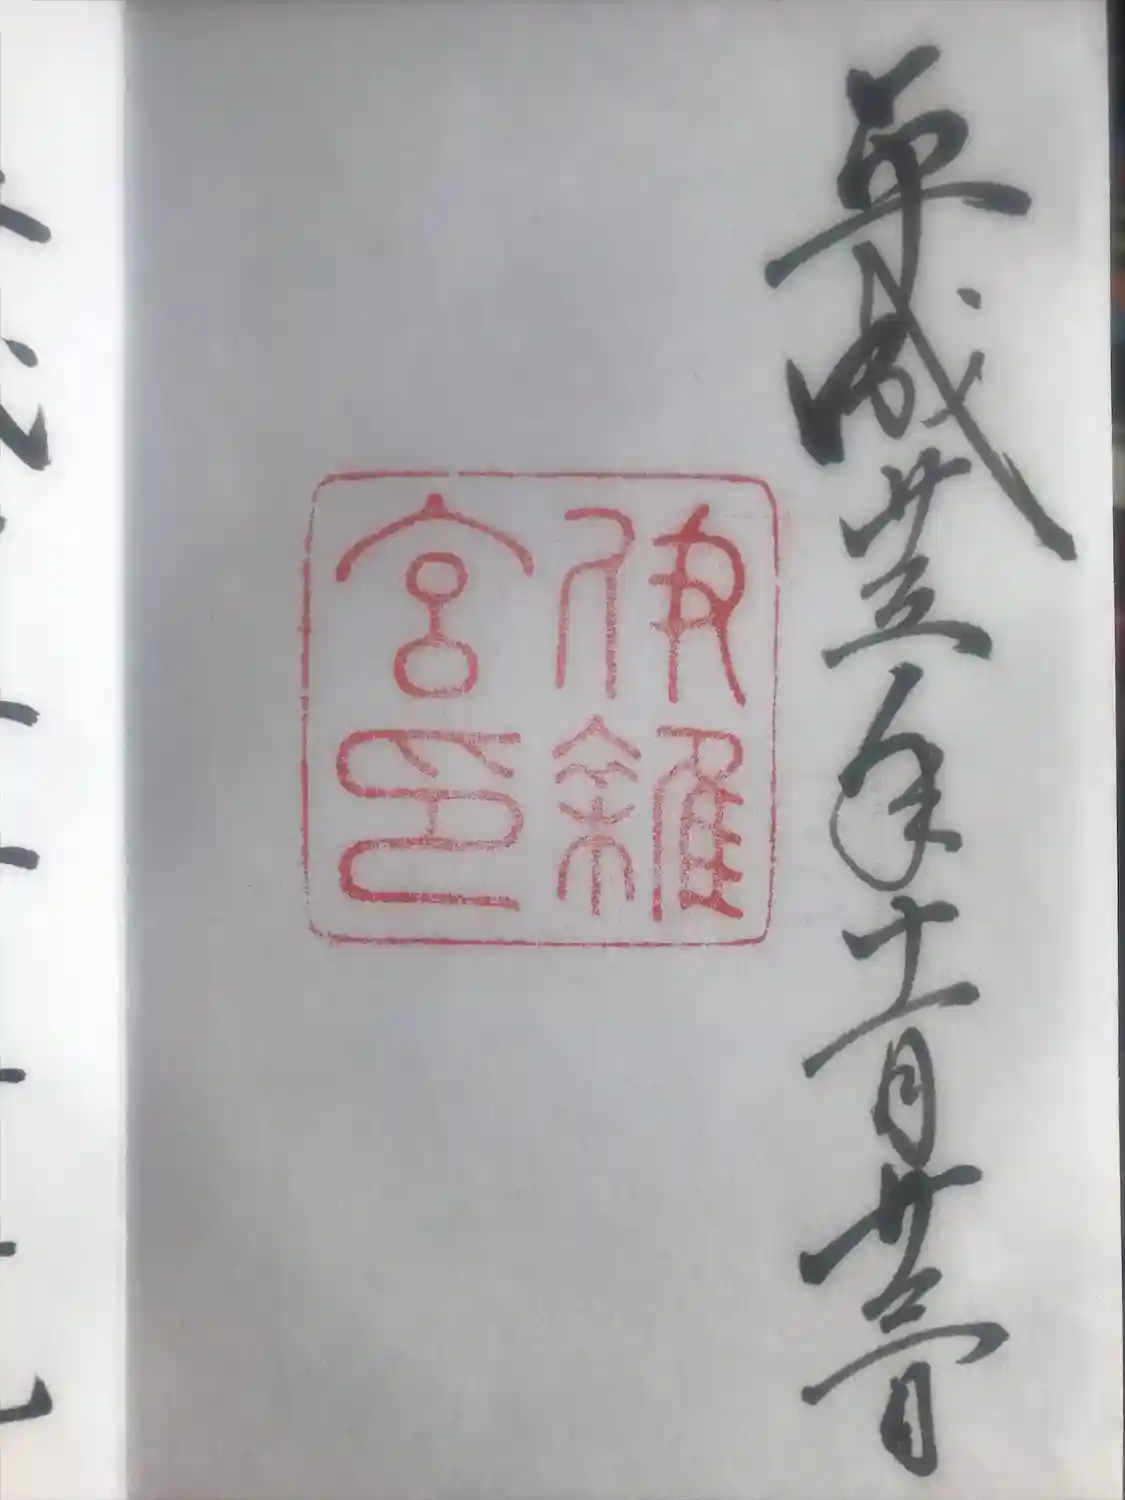 平成廿五年十一月廿三日
伊雜
宮印